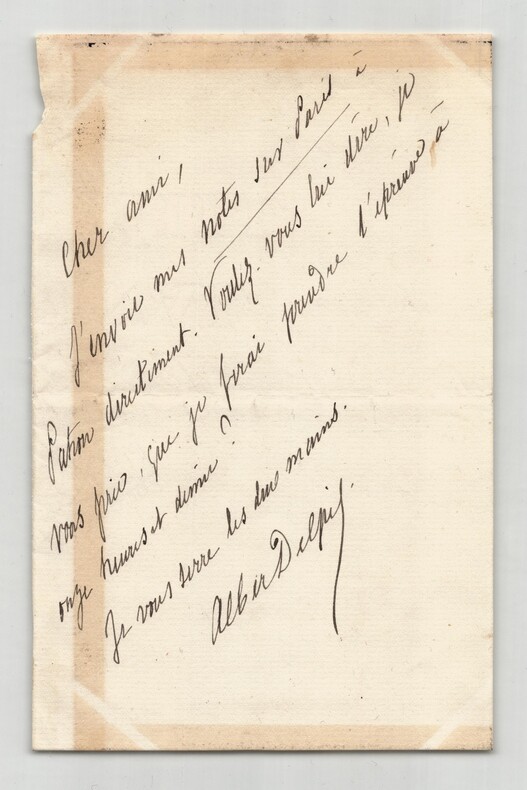 Cher ami,
J'envoie mes notes sur Paris à
Patron directement. Voulez-vous lui dire, je
vous prie, que je ferai prendre l'épreuve à
onze heures et demie ?
Je vous serre les deux mains.
Albert Delpit.